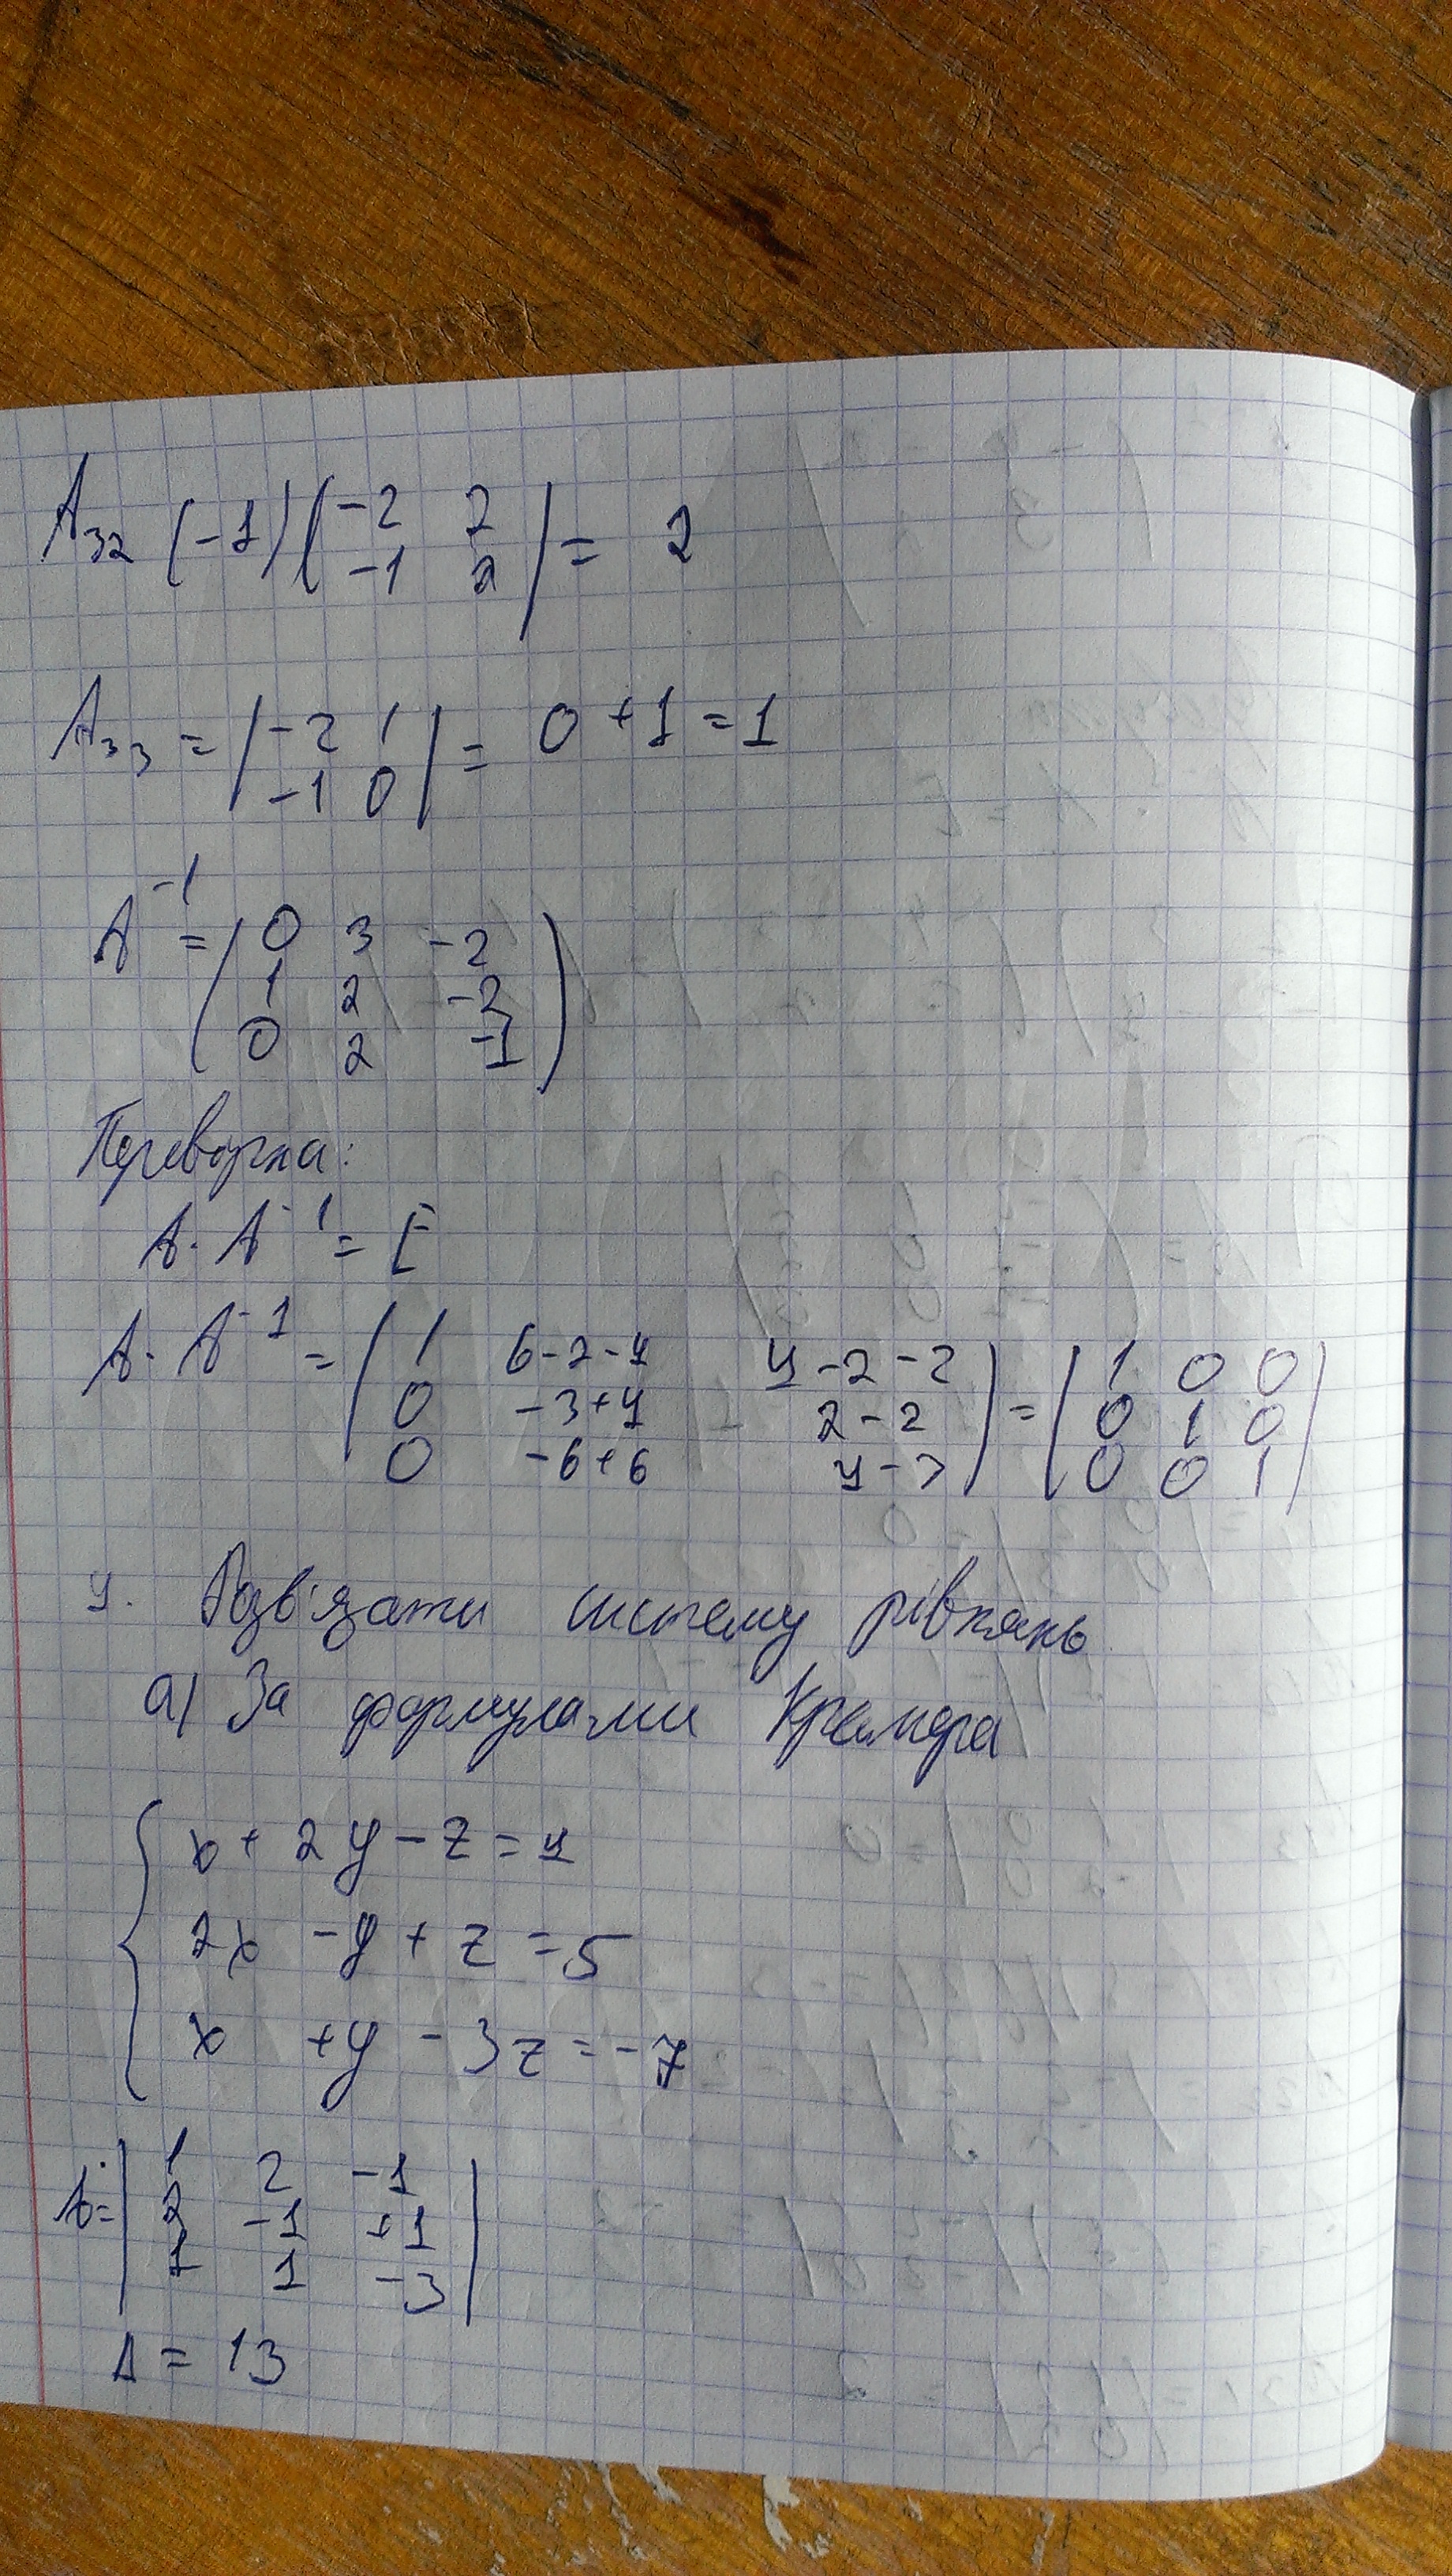 A₃₂ (-1)|-2 2| = 2
-1 2
A₃₃ = |-2 1| = 0 + 1 = 1
-1 0
A⁻¹ = (0 3 -2)
1 2 -2
0 2 -1
Перевірка:
A · A⁻¹ = E
A · A⁻¹ = (1 6-2-4 4-2-2) = (1 0 0)
0 -3+4 2-2 0 1 0
0 -6+6 4-3 0 0 1
4. Розв'язати систему рівнянь
а) За формулами Крамера
x + 2y - z = 4
2x - y + z = 5
x + y - 3z = -7
A = |1 2 -1|
2 -1 +1
1 1 -3
Δ = 13